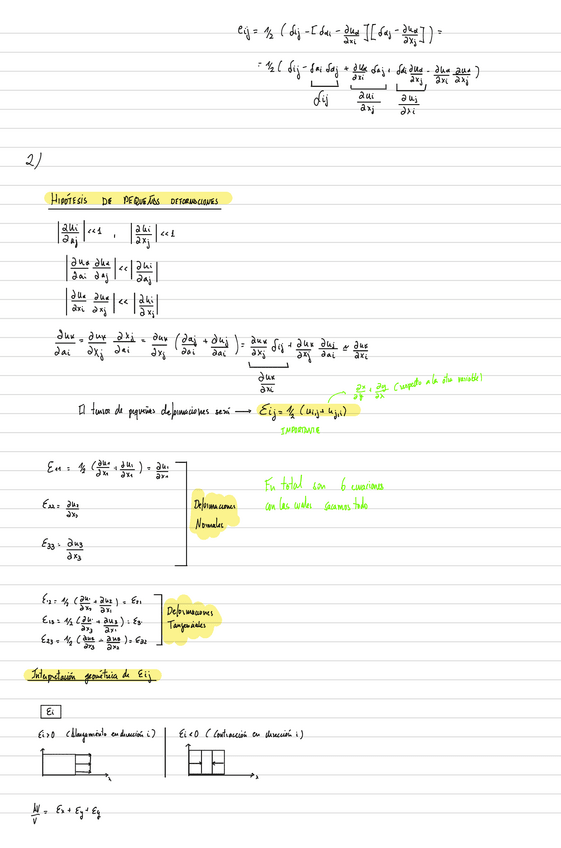 eij = 1/2 ( δij - [ δαi - ∂uα/∂xi ][ δαj - ∂uα/∂xj ] ) =
= 1/2 ( δij - δαi δαj + ∂uα/∂xi δαj + δαi ∂uα/∂xj - ∂uα/∂xi ∂uα/∂xj )
δij ∂ui/∂xj ∂uj/∂xi
2)
HIPÓTESIS DE PEQUEÑAS DEFORMACIONES
|∂ui/∂aj| <<1 , |∂ui/∂xj| <<1
|∂uα/∂ai ∂uα/∂aj| << |∂ui/∂aj|
|∂uα/∂xi ∂uα/∂xj| << |∂ui/∂xj|
∂uα/∂ai = ∂uα/∂xj ∂xj/∂ai = ∂uα/∂xj (∂aj/∂ai + ∂uj/∂ai) = ∂uα/∂xj δij + ∂uα/∂xj ∂uj/∂ai ≈ ∂uα/∂xi
∂uα/∂xi
(respecto a la otra variable)
El tensor de pequeñas deformaciones será → Eij = 1/2 (ui,j + uj,i)
IMPORTANTE
E11 = 1/2 (∂u1/∂x1 + ∂u1/∂x1) = ∂u1/∂x1
E22 = ∂u2/∂x2
E33 = ∂u3/∂x3
Deformaciones
Normales
En total son 6 ecuaciones
con las cuales sacamos todo
E12 = 1/2 (∂u1/∂x2 + ∂u2/∂x1) = E21
E13 = 1/2 (∂u1/∂x3 + ∂u3/∂x1) = E31
E23 = 1/2 (∂u2/∂x3 + ∂u3/∂x2) = E32
Deformaciones
Tangenciales
Interpretación geométrica de Eij
Ei
Ei>0 (Alargamiento en dirección i)
Ei<0 (Contracción en dirección i)
ΔV/V = Ex + Ey + Ez